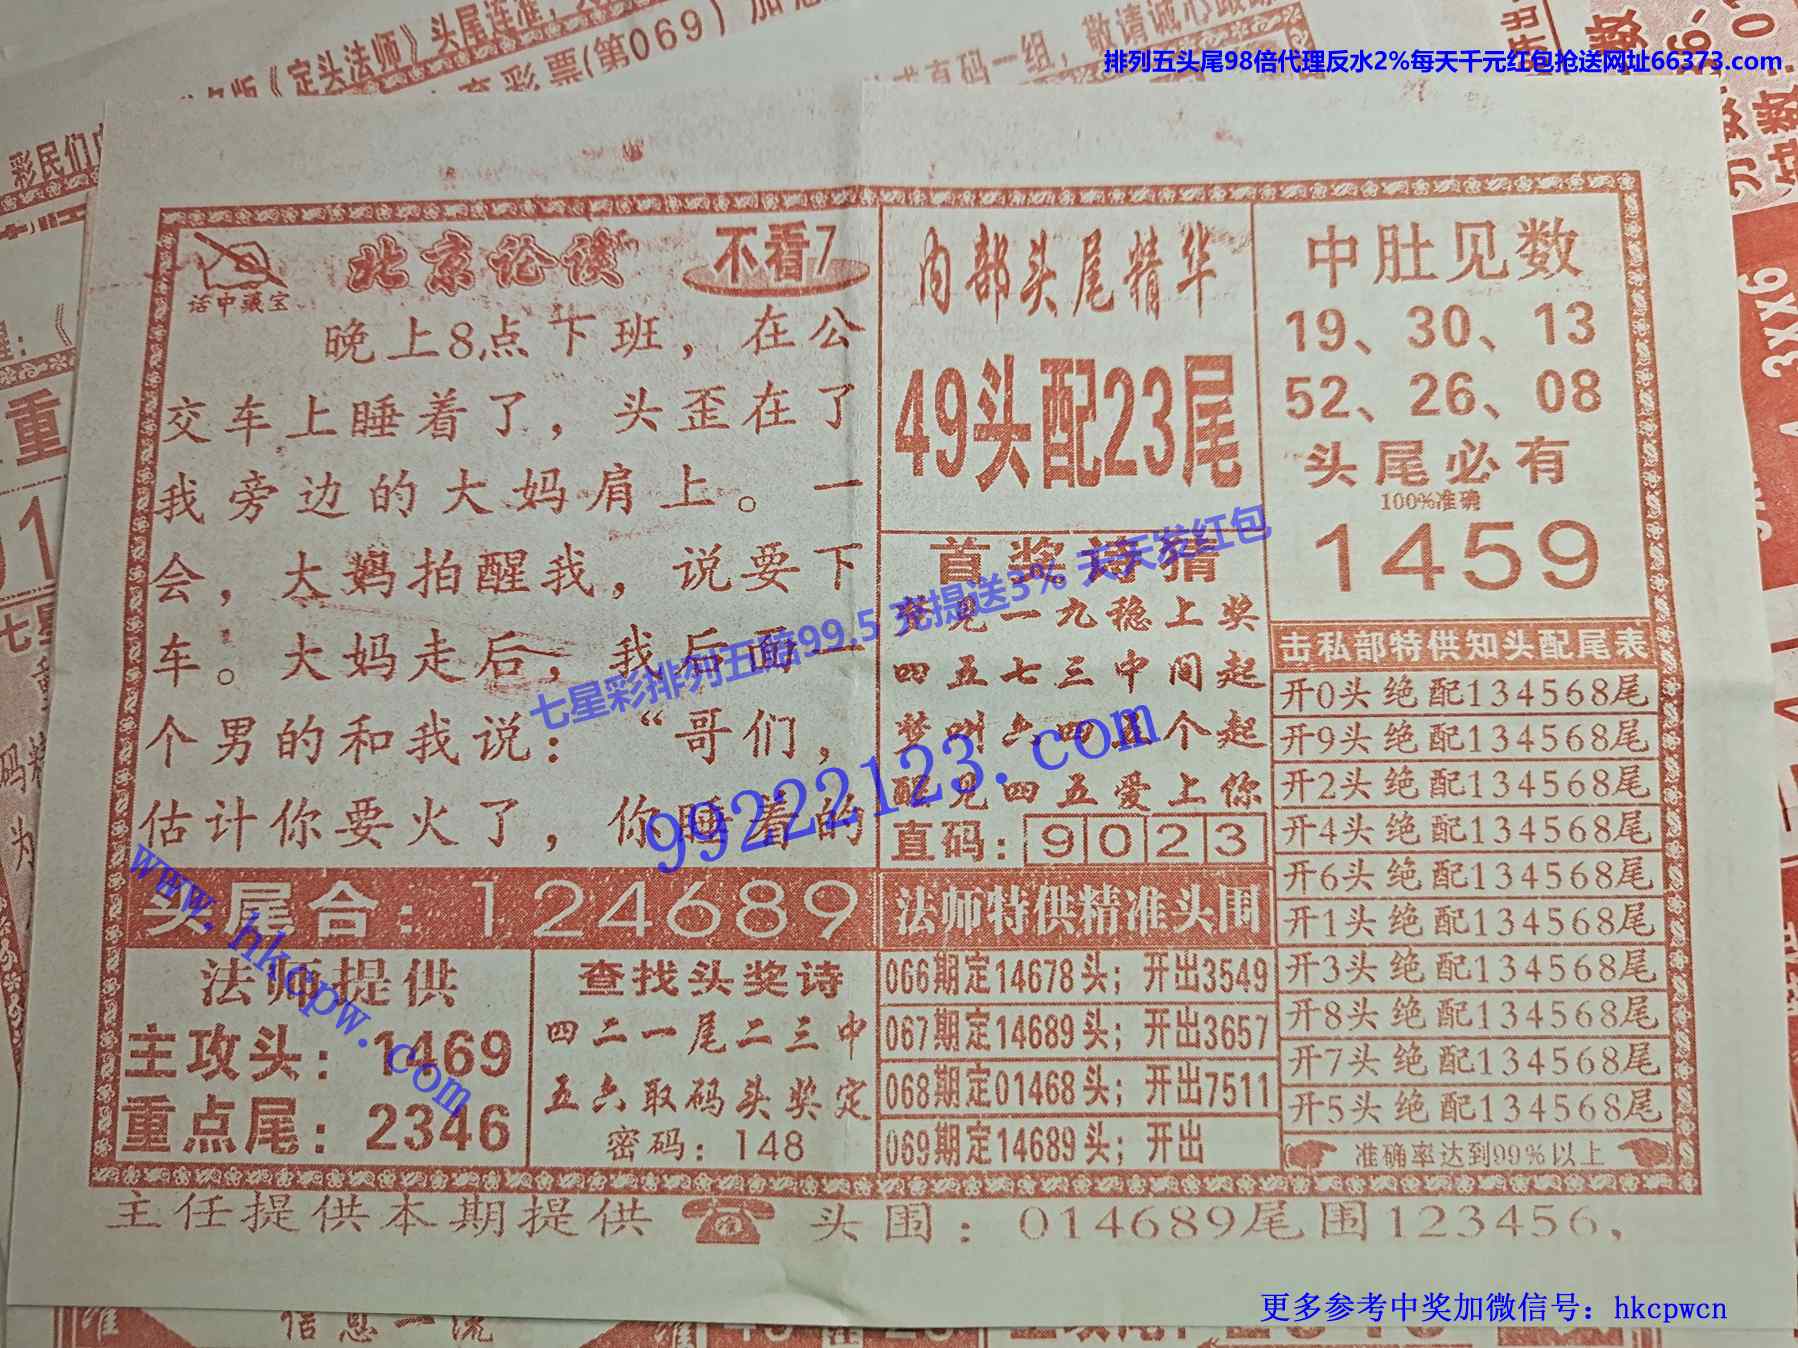 点版《定头法师》头尾连准，
彩票(第069)
直码一组，敬请诚心跟
排列五头尾98倍代理反水2%每天千元红包抢送网址66373.com
彩民们
重
3XX6
话中藏宝
北京论谈
不看7
晚上8点下班，在公
交车上睡着了，头歪在了
我旁边的大妈肩上。一
会，大妈拍醒我，说要下
车。大妈走后，我后面一
个男的和我说：“哥们，
估计你要火了，你睡着的
头尾合：124689
法师提供
主攻头：1469
重点尾：2346
查找头奖诗
四二一尾二三中
五六取码头奖定
密码：148
内部头尾精华
49头配23尾
首奖诗猜
见一九稳上奖
四五七三中间起
梦 六四五个起
醒见四五爱上你
直码：9023
法师特供精准头围
066期定14678头；开出3549
067期定14689头；开出3657
068期定01468头；开出7511
069期定14689头；开出
中肚见数
19、30、13
52、26、08
头尾必有
100%准确
1459
击私部特供知头配尾表
开0头绝配134568尾
开9头绝配134568尾
开2头绝配134568尾
开4头绝配134568尾
开6头绝配134568尾
开1头绝配134568尾
开3头绝配134568尾
开8头绝配134568尾
开7头绝配134568尾
开5头绝配134568尾
准确率达到99%以上
主任提供本期提供 头围：014689尾围123456，
七星彩排列五赔99.5 充提送3% 天天发红包
99222123.com
www.hkcpw.com
信息一流
更多参考中奖加微信号：hkcpwcn